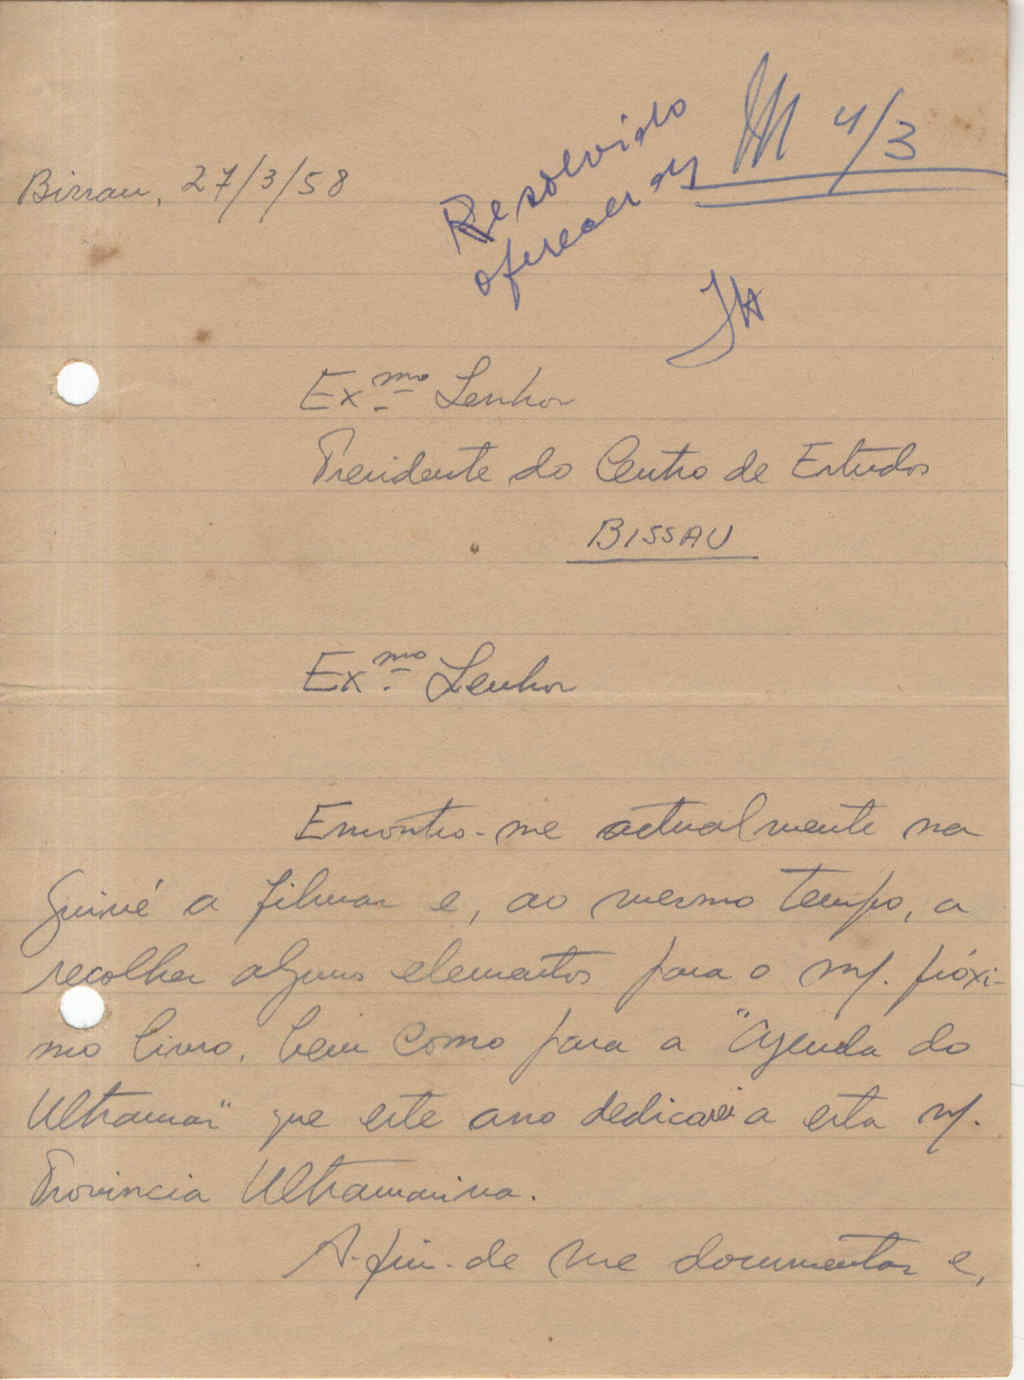 Bissau, 27/3/58
Resolvido
oferecer os
4/3
Exmo. Senhor
Presidente do Centro de Estudos
BISSAU
Exmo. Senhor
Encontro-me actualmente na
Guiné a filmar e, ao mesmo tempo, a
recolher alguns elementos para o m/. próxi-
mo livro, bem como para a "Agenda do
Ultramar" que este ano dedicarei a esta n/.
Provincia Ultramarina.
A-fim-de me documentar e,